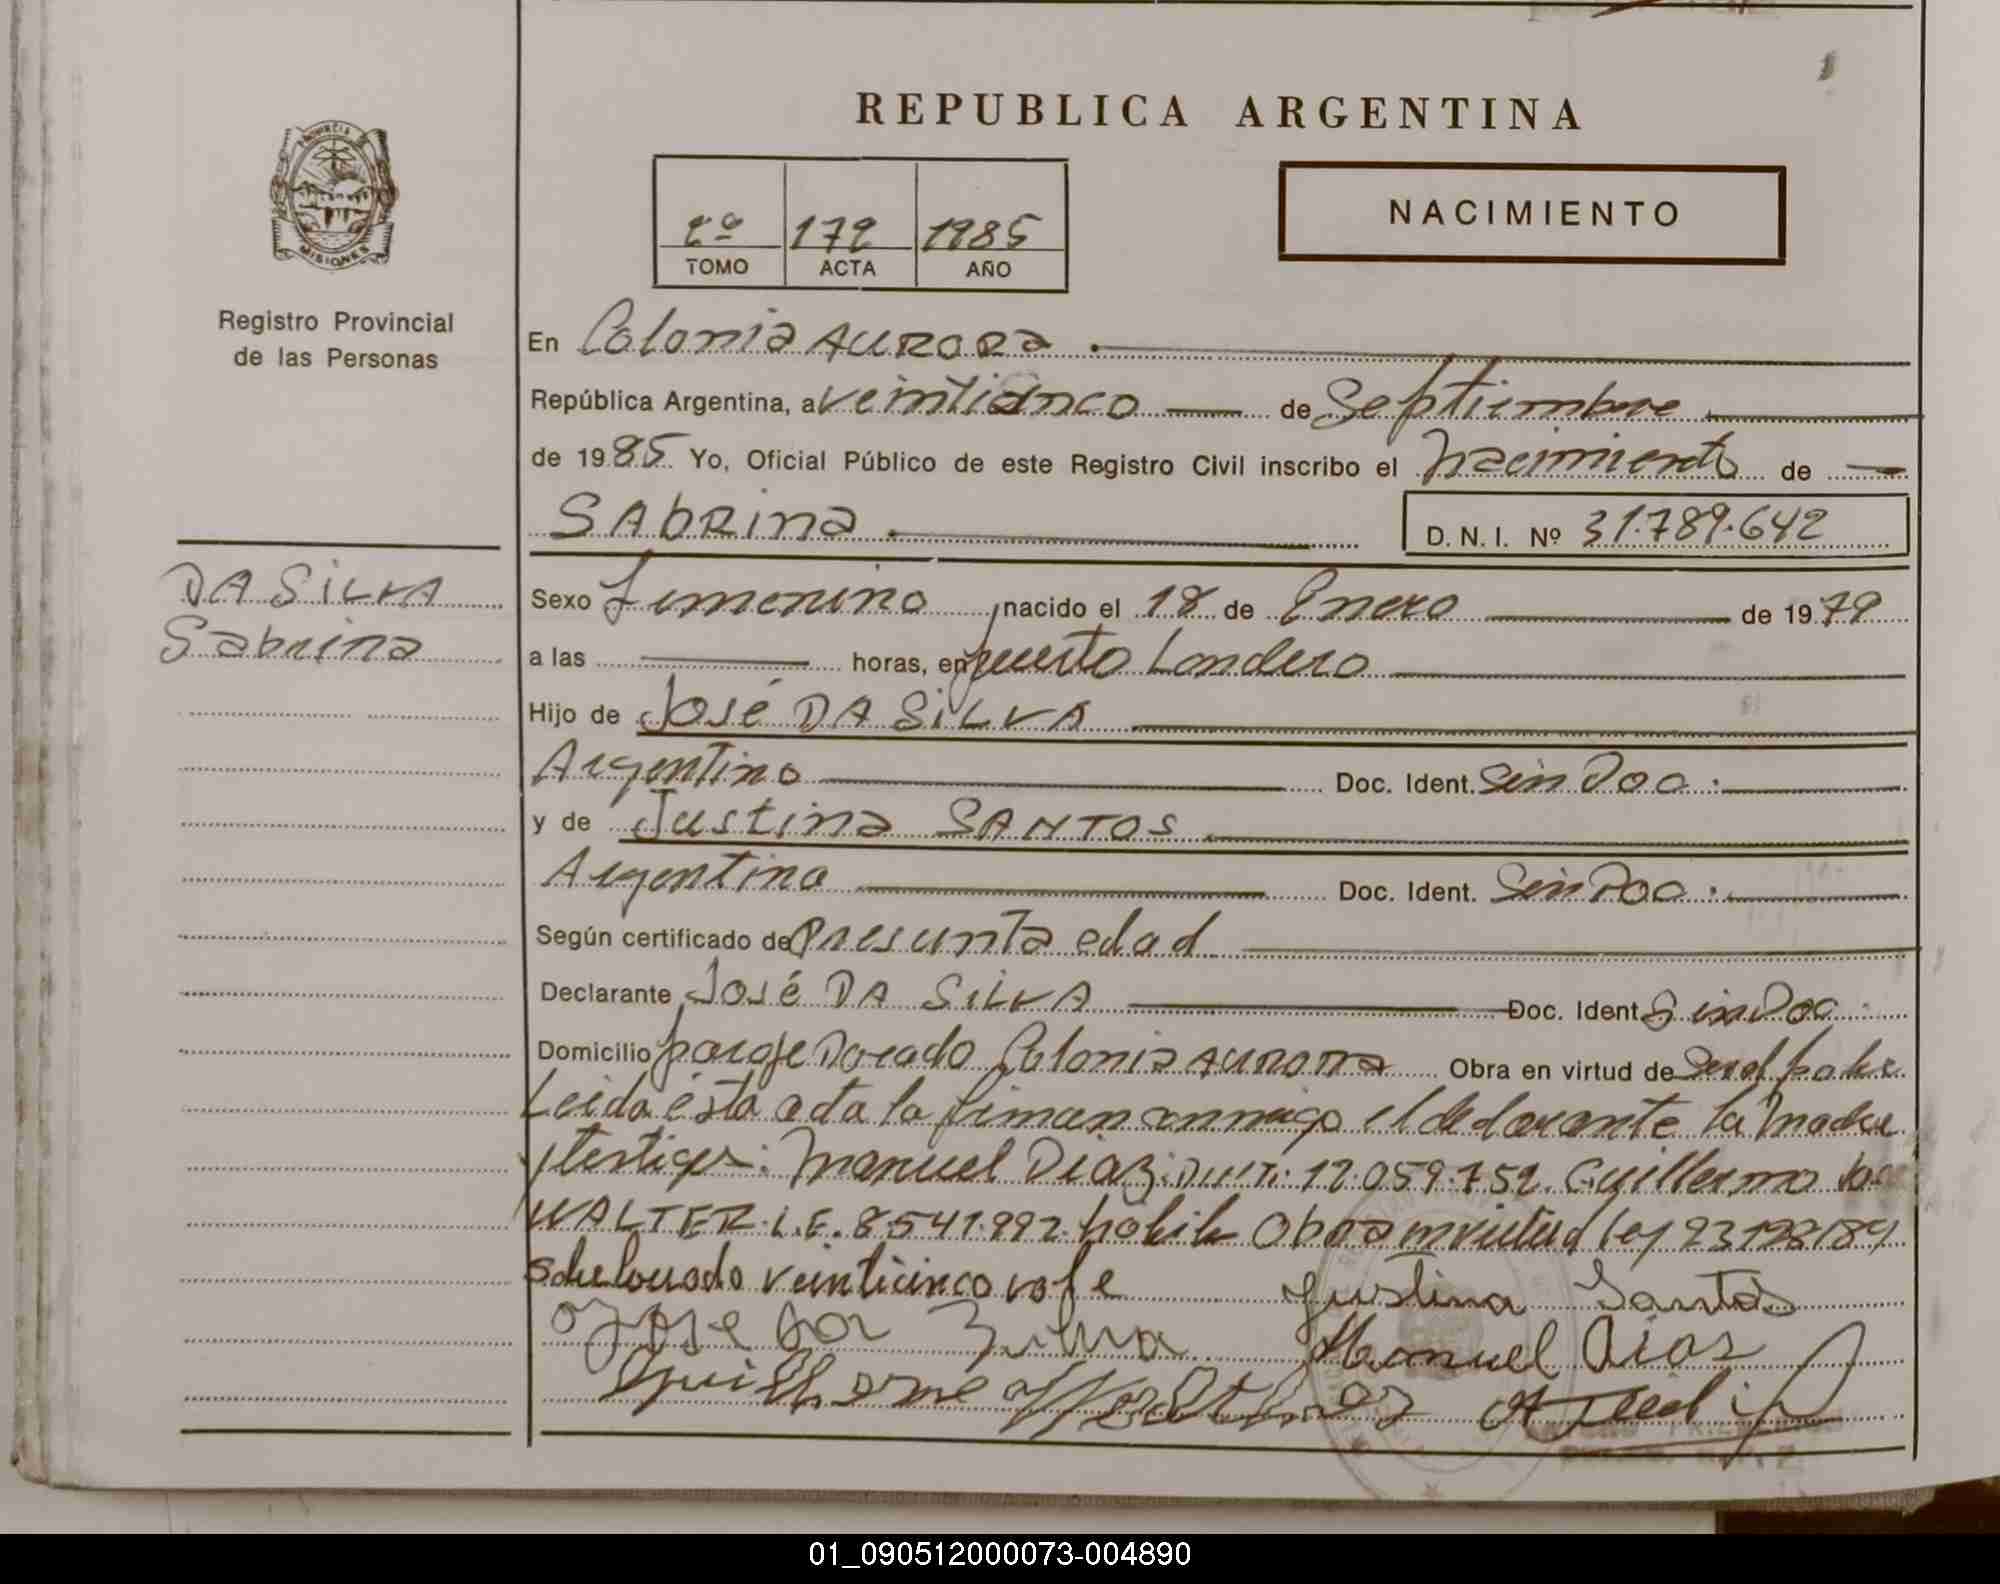 REPUBLICA ARGENTINA
PROVINCIA DE
MISIONES
2º 172 1985
TOMO ACTA AÑO
NACIMIENTO
Registro Provincial
de las Personas
DA SILVA
Sabrina
En Colonia AURORA.
República Argentina, a veinticinco de Septiembre
de 1985 Yo, Oficial Público de este Registro Civil inscribo el Nacimiento de
SAbRina. D. N. I. Nº 31.789.642
Sexo Femenino, nacido el 18 de Enero de 1979
a las horas, en puerto Londero
Hijo de José DA SiLVA
Argentino Doc. Ident. Sin Doc.
y de Justina SANTOS.
Argentina Doc. Ident. Sin Doc.
Según certificado de Presunta edad
Declarante José DA SiLVA Doc. Ident. Sin Doc.
Domicilio paraje Dorado Colonia AURORA Obra en virtud de Ser el padre
Leida ésta acta la firman conmigo el declarante la Madre
y testigos: Manuel Diaz: D.N.I: 12.059.752. Guillermo
WALTER. L.E. 8.541.992. habile Obra en virtud ley 23
veinticinco vale
Justina Santos
Jose Manuel Dias
01_090512000073-004890